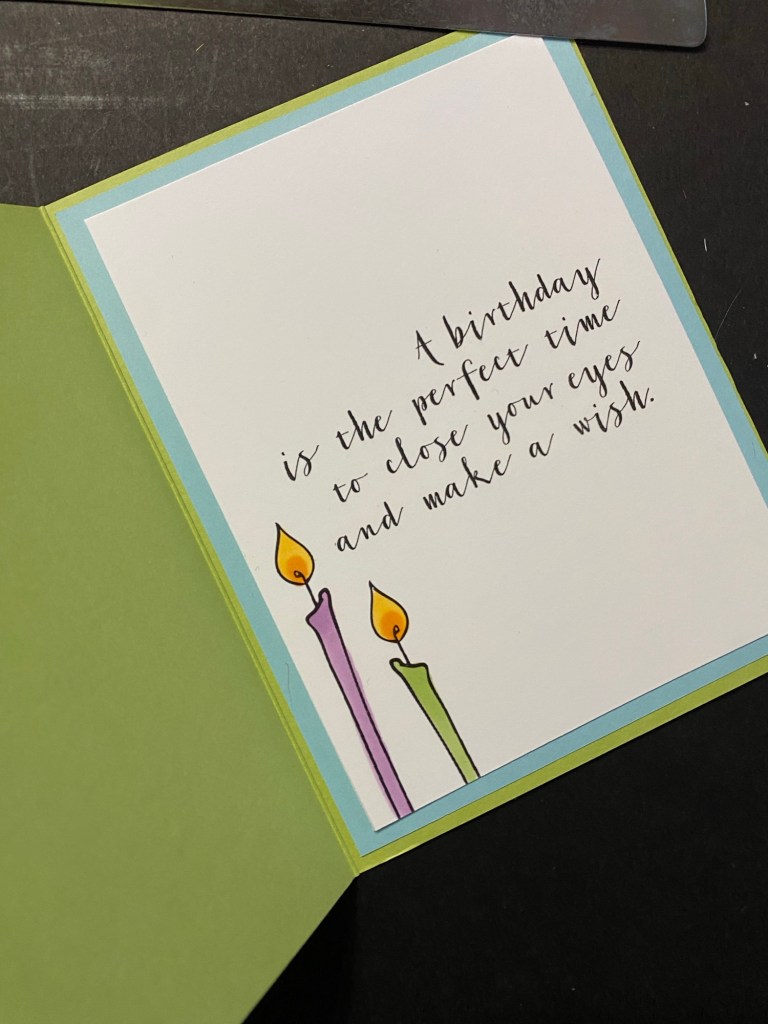 A birthday
is the perfect time
to close your eyes
and make a wish.